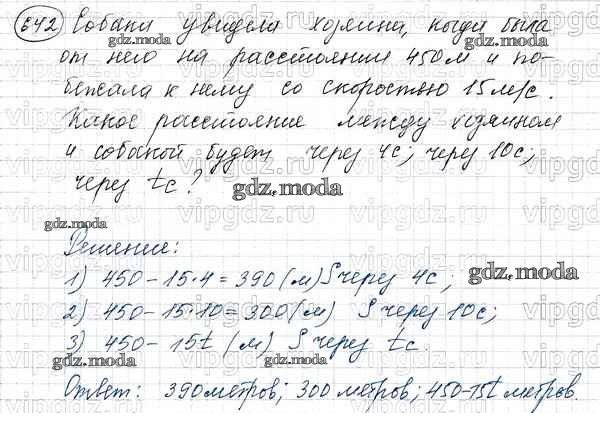 642 Собака увидела хозяина, когда была
от него на расстоянии 450 м и по-
бежала к нему со скоростью 15 м/с.
Какое расстояние между хозяином
и собакой будет через 4с; через 10с;
через tс?
Решение:
1) 450 – 15·4 = 390 (м) S через 4с;
2) 450 – 15·10 = 300 (м) S через 10с;
3) 450 – 15t (м) S через tс.
Ответ: 390 метров; 300 метров; 450-15t метров.
gdz.moda
gdz.moda
gdz.moda
gdz.moda
gdz.moda
gdz.moda
gdz.moda
gdz.moda
vipgdz.ru